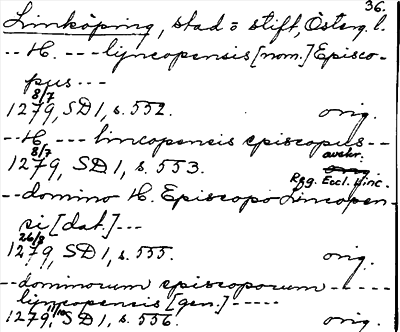 36.
Linköping, stad o stift, Österg. l.
--H. --- lyncopensis [nom.] Episco-
pus ---
8/7
1279, SD 1, s. 552. orig.
--H --- lincopensis episcopus --
8/7 avskr.
1279, SD 1, s. 553. orig.
Reg. Eccl. Linc.
--domino H. Episcopo Lincopen-
si [dat.] ---
26/8
1279, SD 1, s. 555. orig.
--dominorum episcoporum -----
lyncopensis [gen.] -----
1279, SD 1, s. 556. orig.